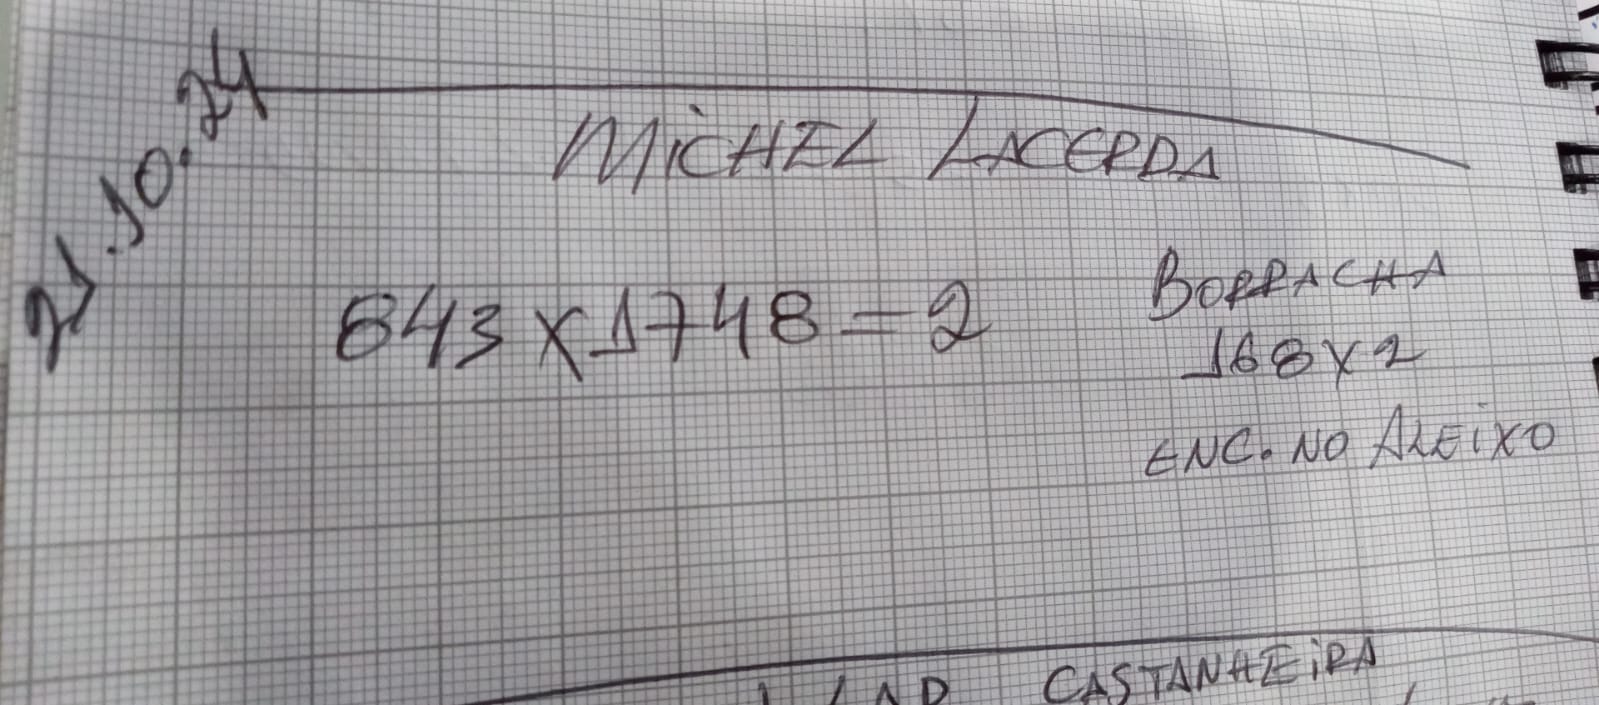 21.10.24
MiCHEL LACERDA
843 X 1748 = 2
BORRACHA
168 X 2
ENC. NO ALEiXO
CASTANHEiRA